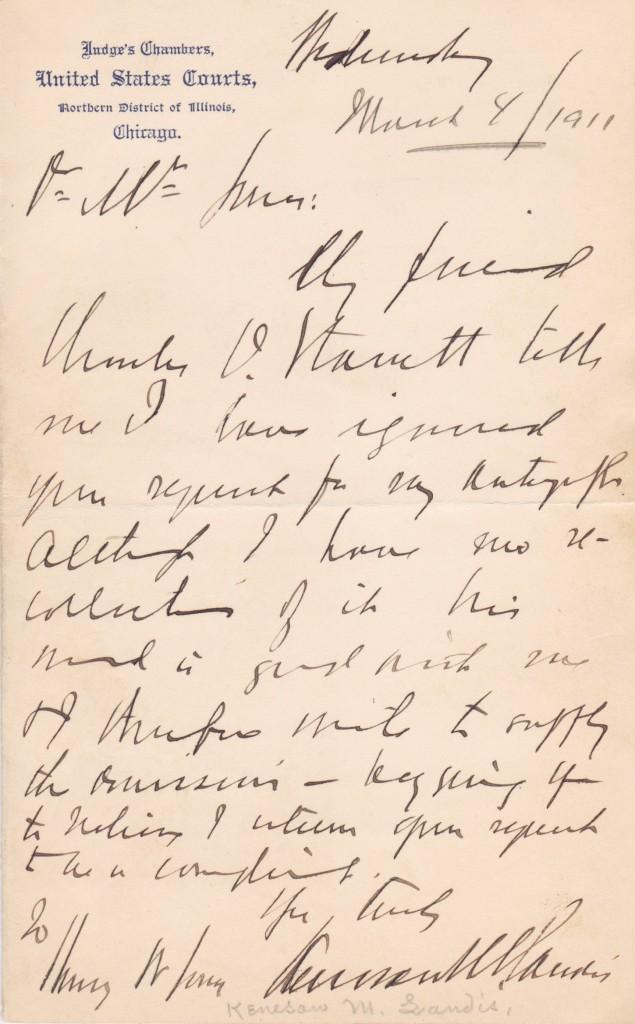 Judge's Chambers,
United States Courts,
Northern District of Illinois,
Chicago.
Wednesday
March 8/1911
Dr Mr Jones:
My friend
Charles D. Starrett tells
me I have ignored
your request for my autograph.
Although I have no re-
collection of it his
word is good with me
& I therefore write to supply
the omission — begging you
to believe I esteem your request
to be a compliment.
Yrs truly
To
Henry W Jones Kenesaw M Landis
Kenesaw M. Landis.